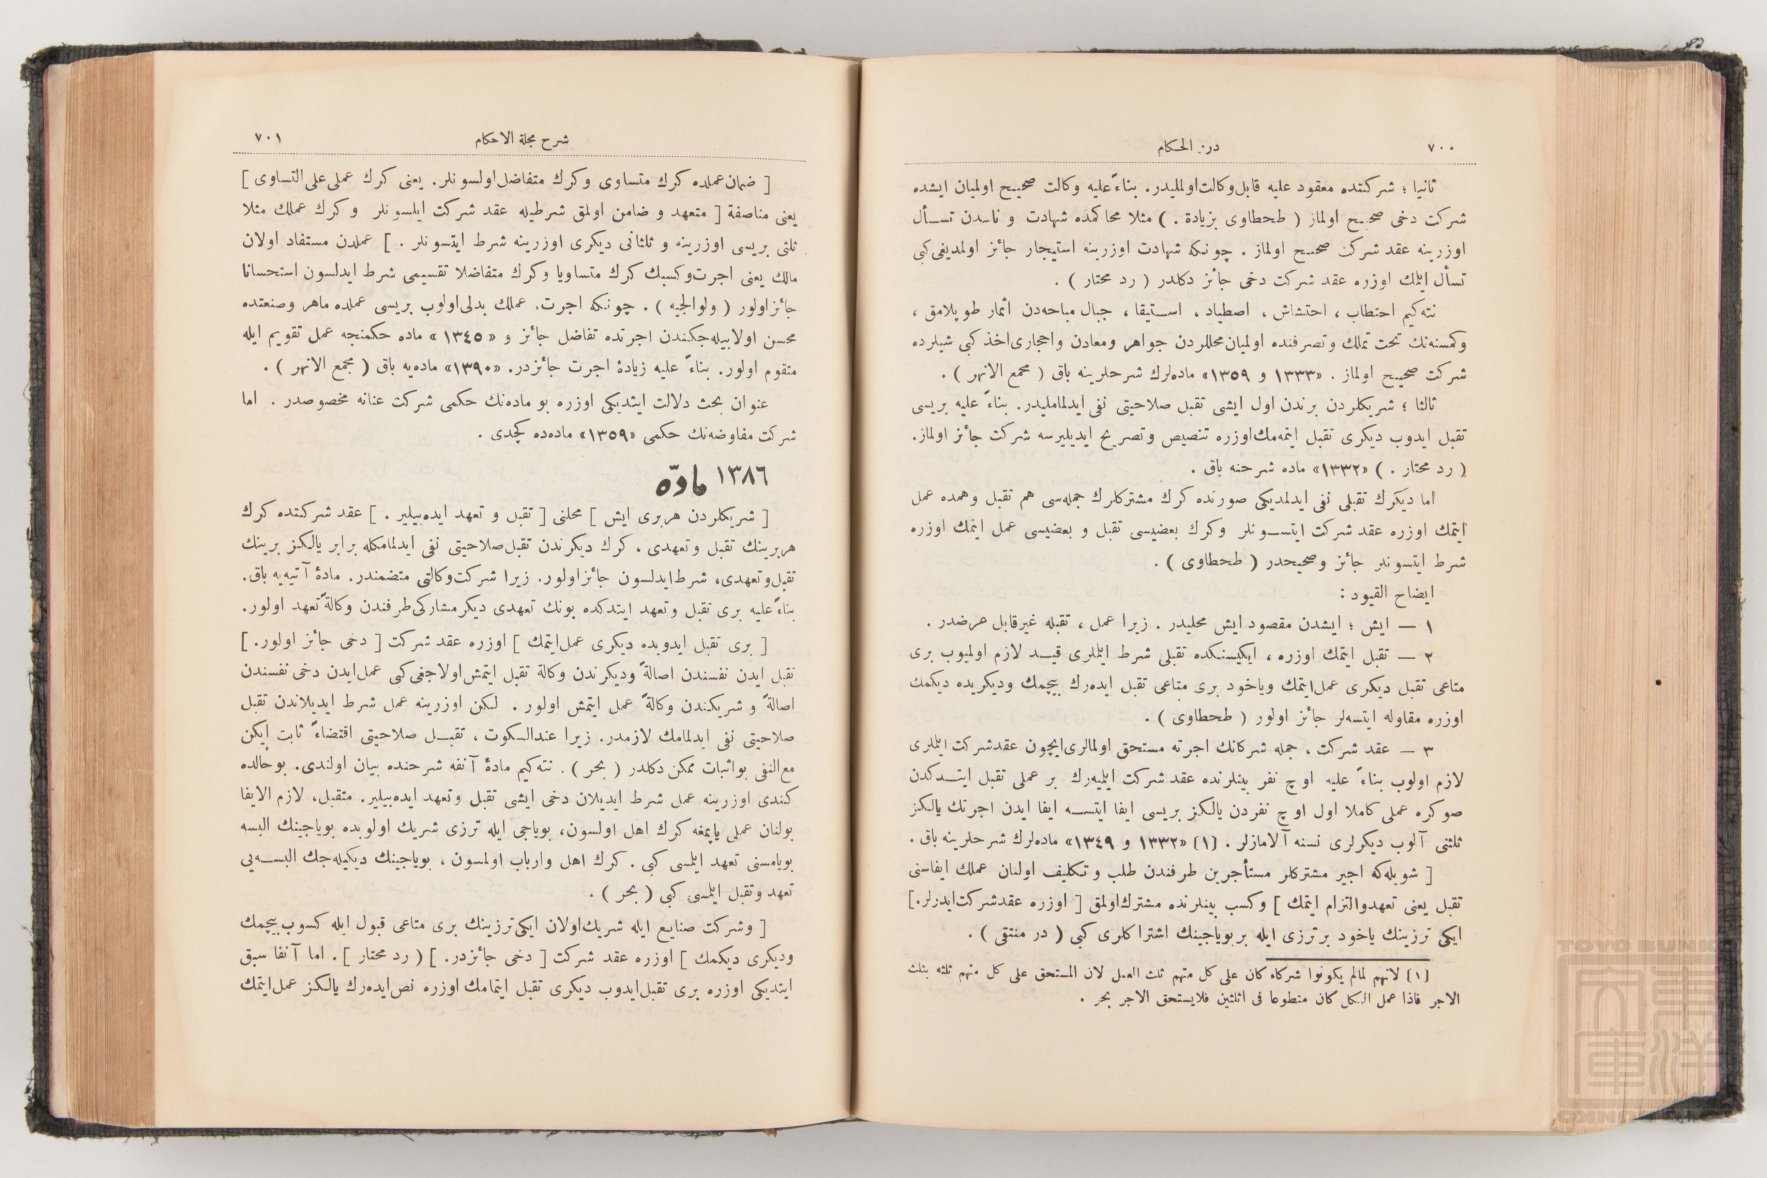 ٧٠٠
درر الحكام
ثانيا ؛ شركتده معقود عليه قابل وكالت اولمليدر. بناءً عليه وكالت صحيح اولميان ايشده
شركت دخى صحيح اولماز ( طحطاوى بزيادة . ) مثلا محاكمده شهادت و ناسدن تسأل
اوزرينه عقد شركت صحيح اولماز . چونكه شهادت اوزرينه استيجار جائز اولمديغى كبى
تسأل ايتمك اوزره عقد شركت دخى جائز دكلدر ( رد محتار ) .
نته كيم احتطاب ، احتشاش ، اصطياد ، استيقا ، جبال مباحه دن اثمار طوپلامق ،
وكمسنه نك تحت تملك وتصرفنده اولميان محللردن جواهر ومعادن واحجارى اخذ كبى شيلرده
شركت صحيح اولماز . «١٣٣٣ و ١٣٥٩» ماده لرك شرحلرينه باق ( مجمع الانهر ) .
ثالثا ؛ شريكلردن برندن اول ايشى تقبل صلاحيتى نفى ايدلماملیدر. بناءً عليه بريسى
تقبل ايدوب ديكرى تقبل ايتمه مك اوزره تنصيص وتصريح ايديليرسه شركت جائز اولماز.
( رد محتار . ) «١٣٣٢» ماده شرحنه باق .
اما ديكرك تقبلى نفى ايدلمديكى صورتده كرك مشتركلرك جمله سى هم تقبل وهمده عمل
ايتمك اوزره عقد شركت ايتسونلر وكرك بعضيسى تقبل و بعضيسى عمل ايتمك اوزره
شرط ايتسونلر جائز وصحيحدر ( طحطاوى ) .
ايضاح القيود :
١ — ايش ؛ ايشدن مقصود ايش محليدر . زيرا عمل ، تقبله غيرقابل عرضدر .
٢ — تقبل ايتمك اوزره ، ايكيسنكده تقبلى شرط ايتملرى قيد لازم اولميوب برى
متاعى تقبل ديكرى عمل ايتمك وياخود برى متاعى تقبل ايده رك بيچمك وديكريده ديكمك
اوزره مقاوله ايتسه لر جائز اولور ( طحطاوى ) .
٣ — عقد شركت ، جمله شركانك اجرته مستحق اولمالرى ايچون عقدشركت ايتملرى
لازم اولوب بناءً عليه اوچ نفر بينلرنده عقد شركت ايتميه رك بر عملى تقبل ايتدكدن
صوكره عملى كاملا اول اوچ نفردن يالكز بريسى ايفا ايتسه ايفا ايدن اجرتك يالكز
ثلثنى آلوب ديكرلرى نسنه آلامازلر . (١) «١٣٣٢ و ١٣٤٩» ماده لرك شرحلرينه باق .
[ شويله كه اجير مشتركلر مستأجرين طرفندن طلب و تكليف اولنان عملك ايفاسنى
تقبل يعنى تعهدوالتزام ايتمك ] وكسب بينلرنده مشترك اولمق [ اوزره عقدشركت ايدرلر.]
ايكى ترزينك ياخود برترزى ايله بربوياجينك اشتراكلرى كبى ( در منتقى ) .
(١) لانهم لمالم يكونوا شركاء كان على كل منهم ثلث العمل لان المستحق على كل منهم ثلثه بثلث
الاجر فاذا عمل الكل كان متطوعا فى الثلثين فلايستحق الاجر بحر .
شرح مجلة الاحكام
٧٠١
[ ضمان عملده كرك متساوى وكرك متفاضل اولسونلر. يعنى كرك عملى على التساوى ]
يعنى مناصفة [ متعهد و ضامن اولمق شرطيله عقد شركت ايلسونلر وكرك عملك مثلا
ثلثى بريسى اوزرينه و ثلثانى ديكرى اوزرينه شرط ايتسونلر . ] عملدن مستفاد اولان
مالك يعنى اجرت وكسبك كرك متساويا وكرك متفاضلا تقسيمى شرط ايدلسون استحسانا
جائز اولور ( ولوالجيه ) . چونكه اجرت، عملك بدلى اولوب بريسى عملده ماهر وصنعتده
محسن اولابيله جكندن اجرتده تفاضل جائز و «١٣٤٥» ماده حكمنجه عمل تقويم ايله
متقوم اولور. بناءً عليه زيادۀ اجرت جائزدر. «١٣٩٠» ماده يه باق ( مجمع الانهر ) .
عنوان بحث دلالت ايتديكى اوزره بو ماده نك حكمى شركت عنانه مخصوصدر . اما
شركت مفاوضه نك حكمى «١٣٥٩» ماده ده كچدى .
١٣٨٦ مادّه
[ شريكلردن هربرى ايش ] محلنى [ تقبل و تعهد ايده بيلير . ] عقد شركتده كرك
هربرينك تقبل وتعهدى ، كرك ديكرندن تقبل صلاحيتى نفى ايدلمامكله برابر يالكز برينك
تقبل وتعهدى، شرط ايدلسون جائز اولور. زيرا شركت وكالتى متضمندر. مادۀ آتيه يه باق.
بناءً عليه برى تقبل وتعهد ايتدكده بونك تعهدى ديكر مشاركى طرفندن وكالةً تعهد اولور.
[ برى تقبل ايدوبده ديكرى عمل ايتمك ] اوزره عقد شركت [ دخى جائز اولور. ]
تقبل ايدن نفسندن اصالةً وديكرندن وكالة تقبل ايتمش اولاجغى كبى عمل ايدن دخى نفسندن
اصالةً و شريكندن وكالةً عمل ايتمش اولور . لكن اوزرينه عمل شرط ايديلاندن تقبل
صلاحيتى نفى ايدلمامك لازمدر. زيرا عندالسكوت ، تقبل صلاحيتى اقتضاءً ثابت ايكن
مع النفى بواثبات ممكن دكلدر ( بحر ) . نته كيم مادۀ آنفه شرحنده بيان اولندى. بوحالده
كندى اوزرينه عمل شرط ايديلان دخى ايشى تقبل وتعهد ايده بيلير. متقبل، لازم الايفا
بولنان عملى ياپمغه كرك اهل اولسون، بوياجى ايله ترزى شريك اولوبده بوياجينك البسه
بويامسنى تعهد ايلمسى كبى . كرك اهل وارباب اولمسون ، بوياجينك ديكيله جك البسه يى
تعهد وتقبل ايلمسى كبى ( بحر ) .
[ وشركت صنايع ايله شريك اولان ايكى ترزينك برى متاعى قبول ايله كسوب بيچمك
وديكرى ديكمك ] اوزره عقد شركت [ دخى جائزدر. ] ( رد محتار ) . اما آنفا سبق
ايتديكى اوزره برى تقبل ايدوب ديكرى تقبل ايتمامك اوزره نص ايده رك يالكز عمل ايتمك
TOYO BUNKO